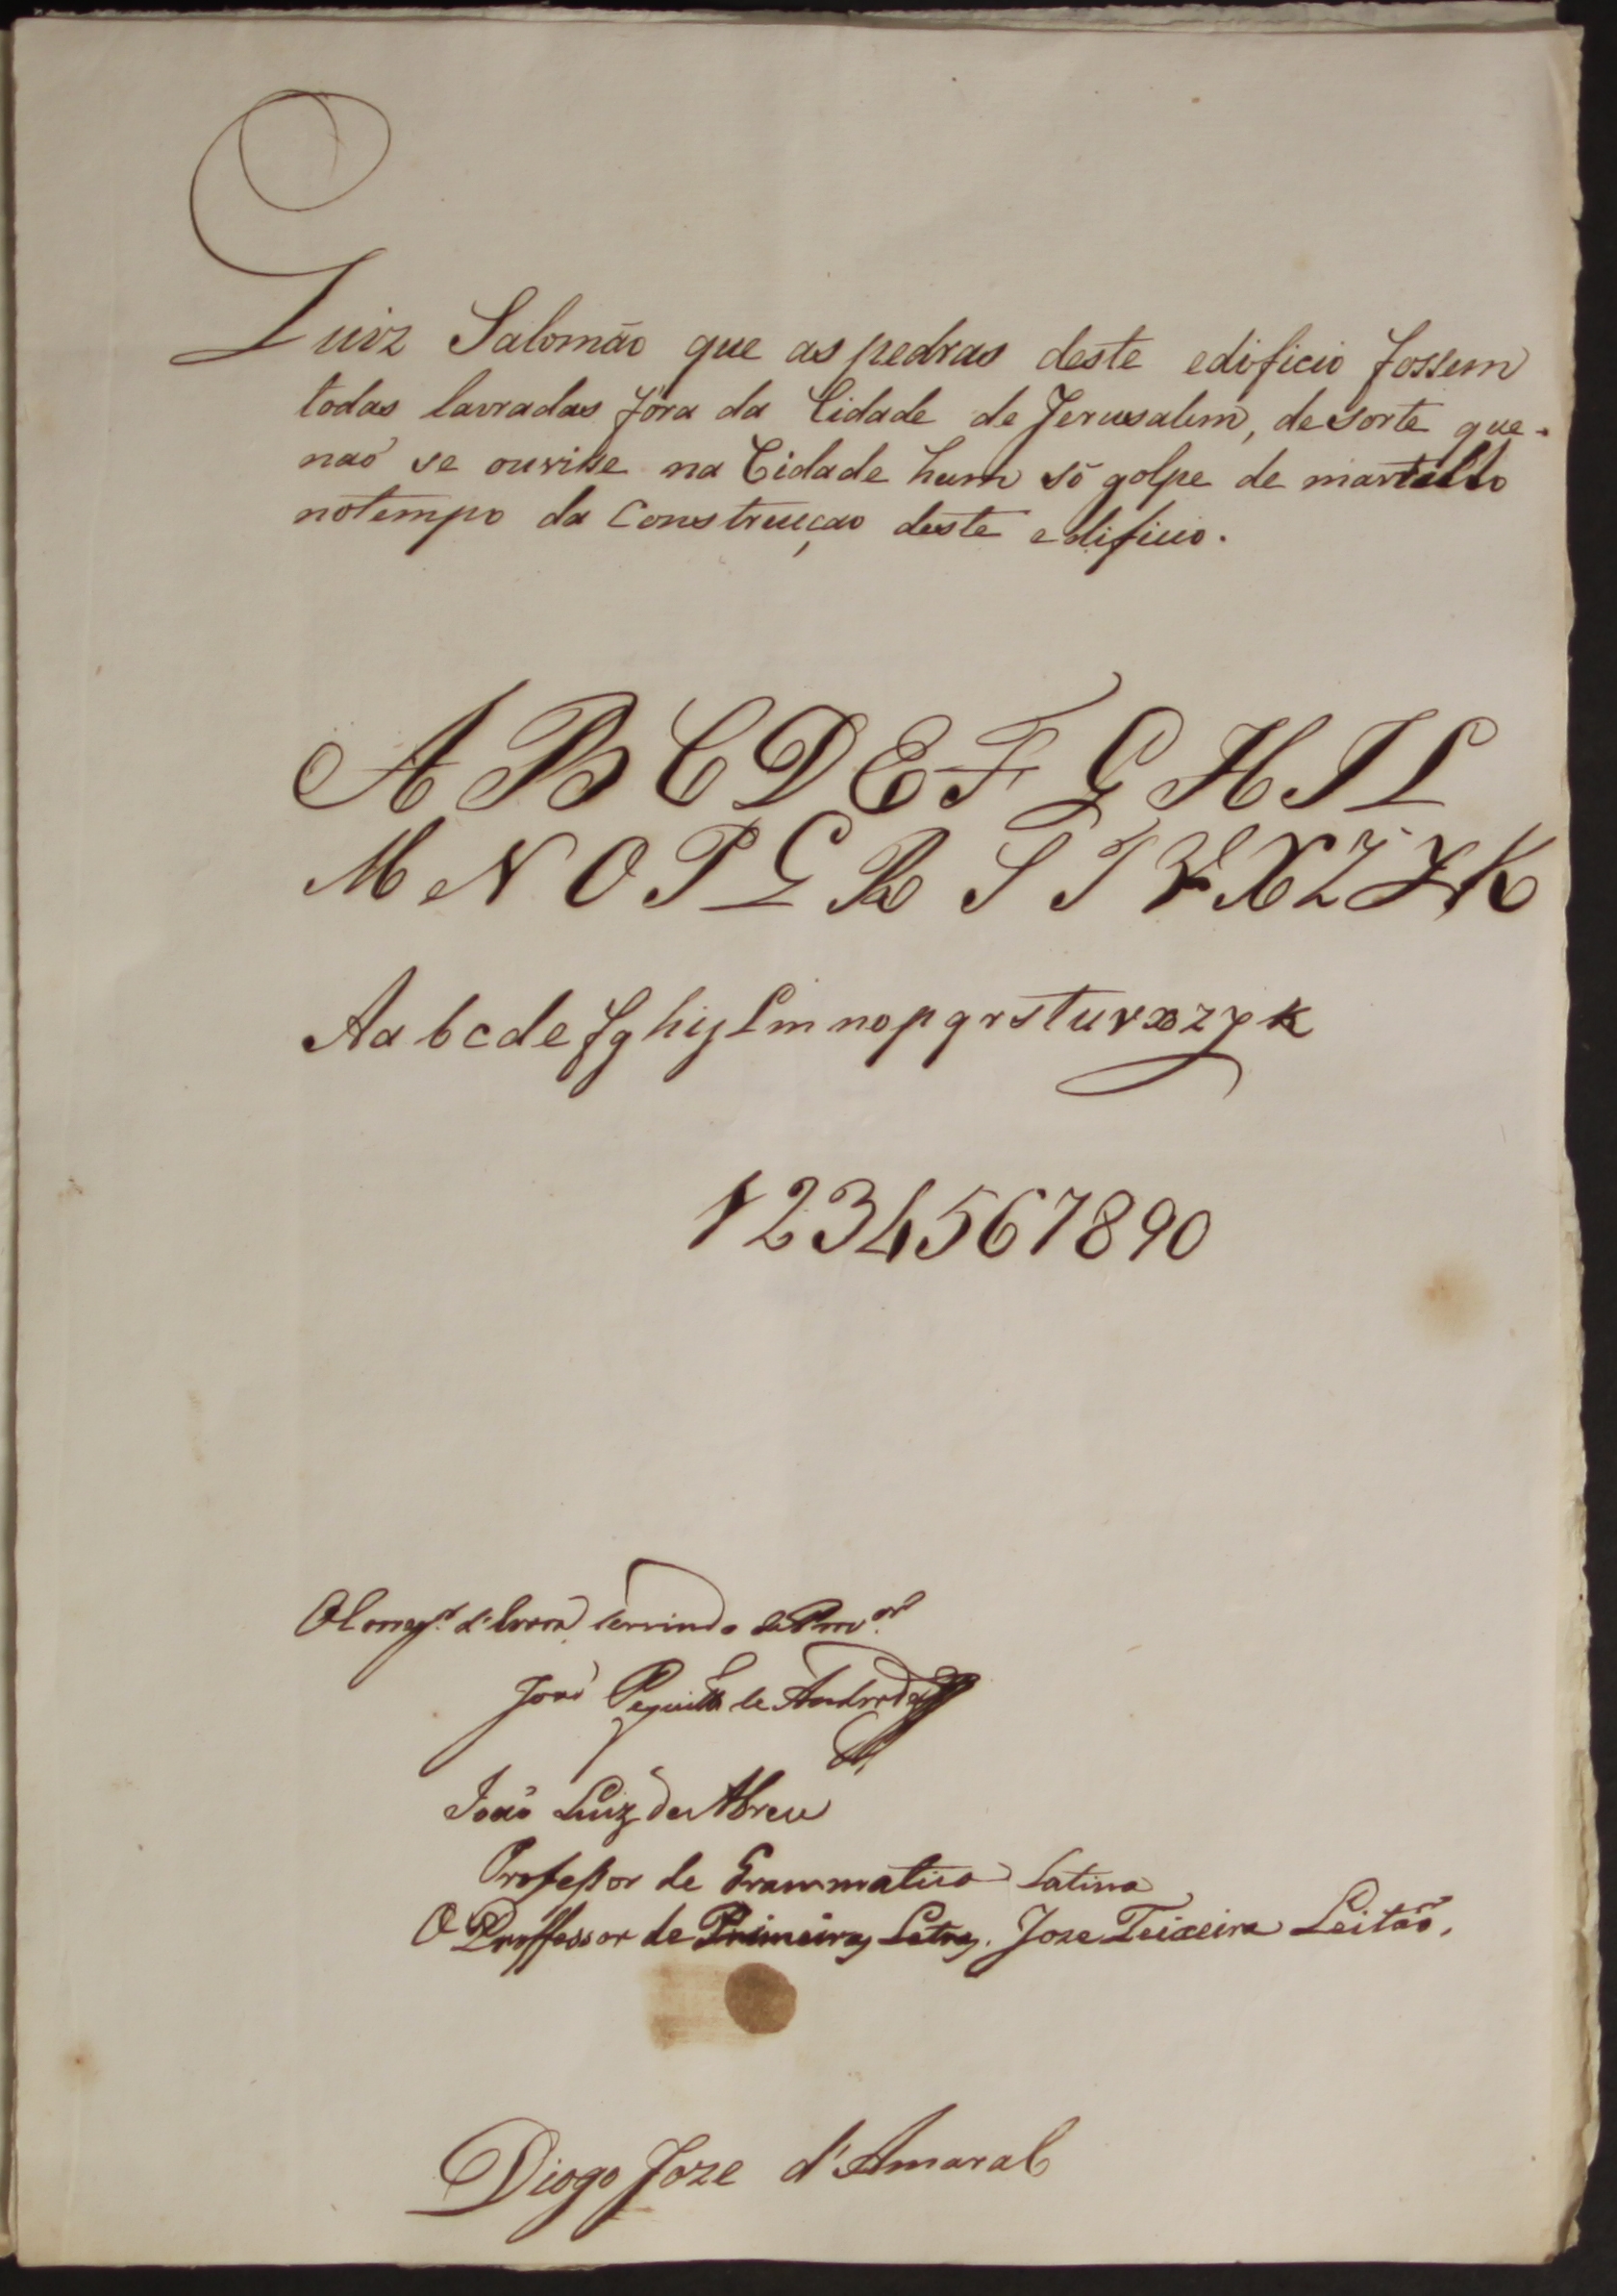 Quiz Salomão que as pedras deste edificio fossem
todas lavradas fóra da Cidade de Jerusalem, de sorte que
naõ se ouvisse na Cidade hum só golpe de martello
no tempo da Construcçao deste edificio.
A B C D E F G H I L
M N O P Q R S T V X Z Y K
A a b c d e f g h i j l m n o p q r s t u v x z y k
1 2 3 4 5 6 7 8 9 0
servindo de Prov.or
João de Andrade
João Luiz de Abreu
Professor de Grammatica Latina
O Proffessor de Primeiras Letras. Joze Teixeira Leitaõ.
Diogo Joze d'Amaral